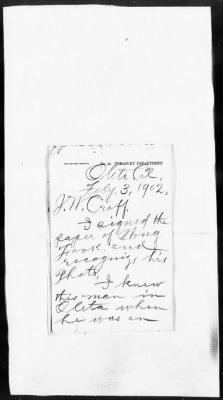 TREASURY DEPARTMENT
Oleta Cal,
July, 3, 1902,
J. W. Croff.
I signed the
paper of Ung
Fook and
recognize his
Photo,
I knew
this man in
Oleta when
he was an